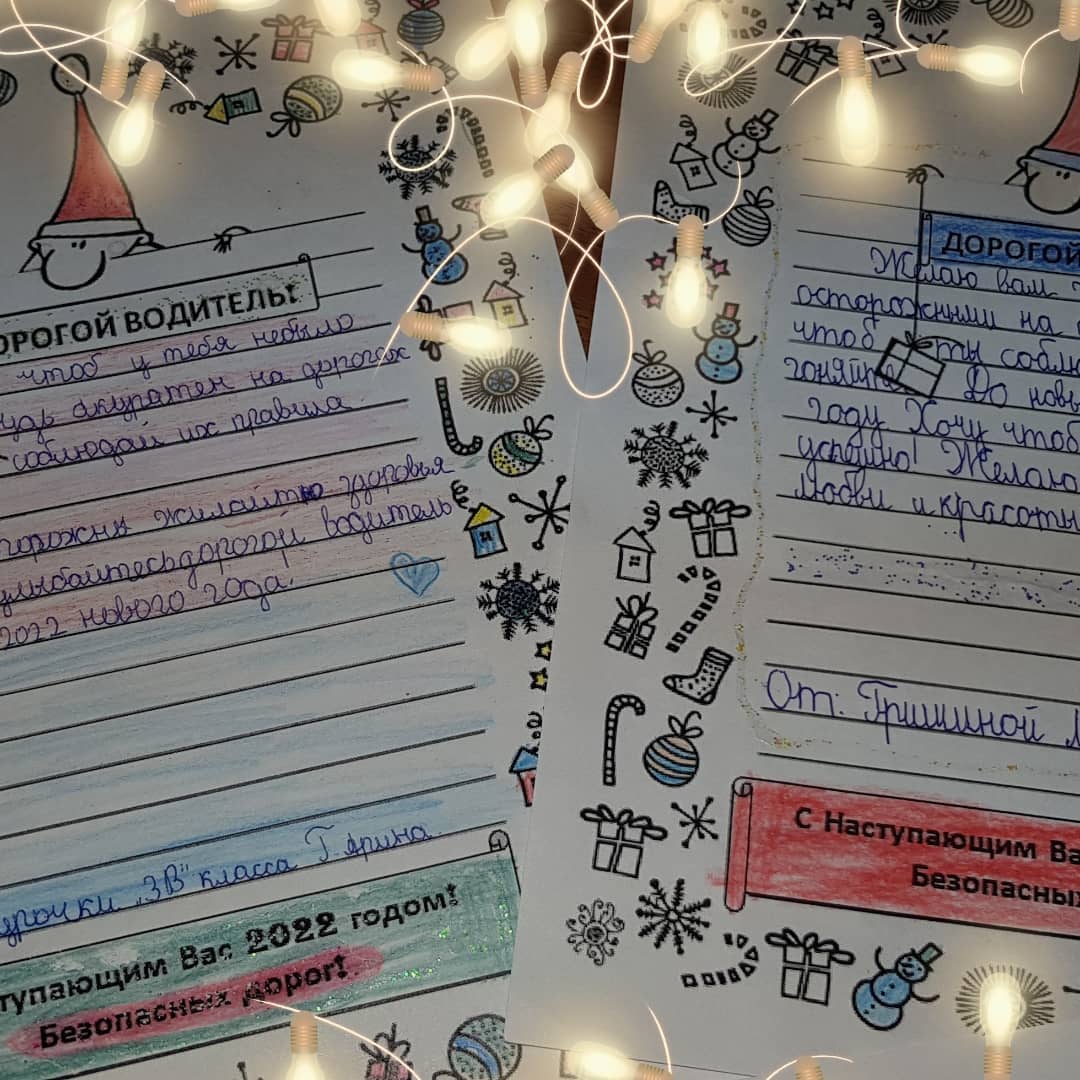 ОРОГОЙ ВОДИТЕЛЬ!
чтоб у тебя небыло
удь акуратен на дорогах
соблюдай их правила.
торожны жилайтю здоровья
улыбайтесьдорогой водитель
2022 нового года.
урочки "3В" класса Г. Арина.
тупающим Вас 2022 годом!
Безопасных дорог!
ДОРОГОЙ
Желаю вам
осторожными на
чтоб ты соблю
гоняйте До новы
году Хочу чтоб
успешно! Желаю
Любви и красоты
От: Гришиной
С Наступающим Ва
Безопасны